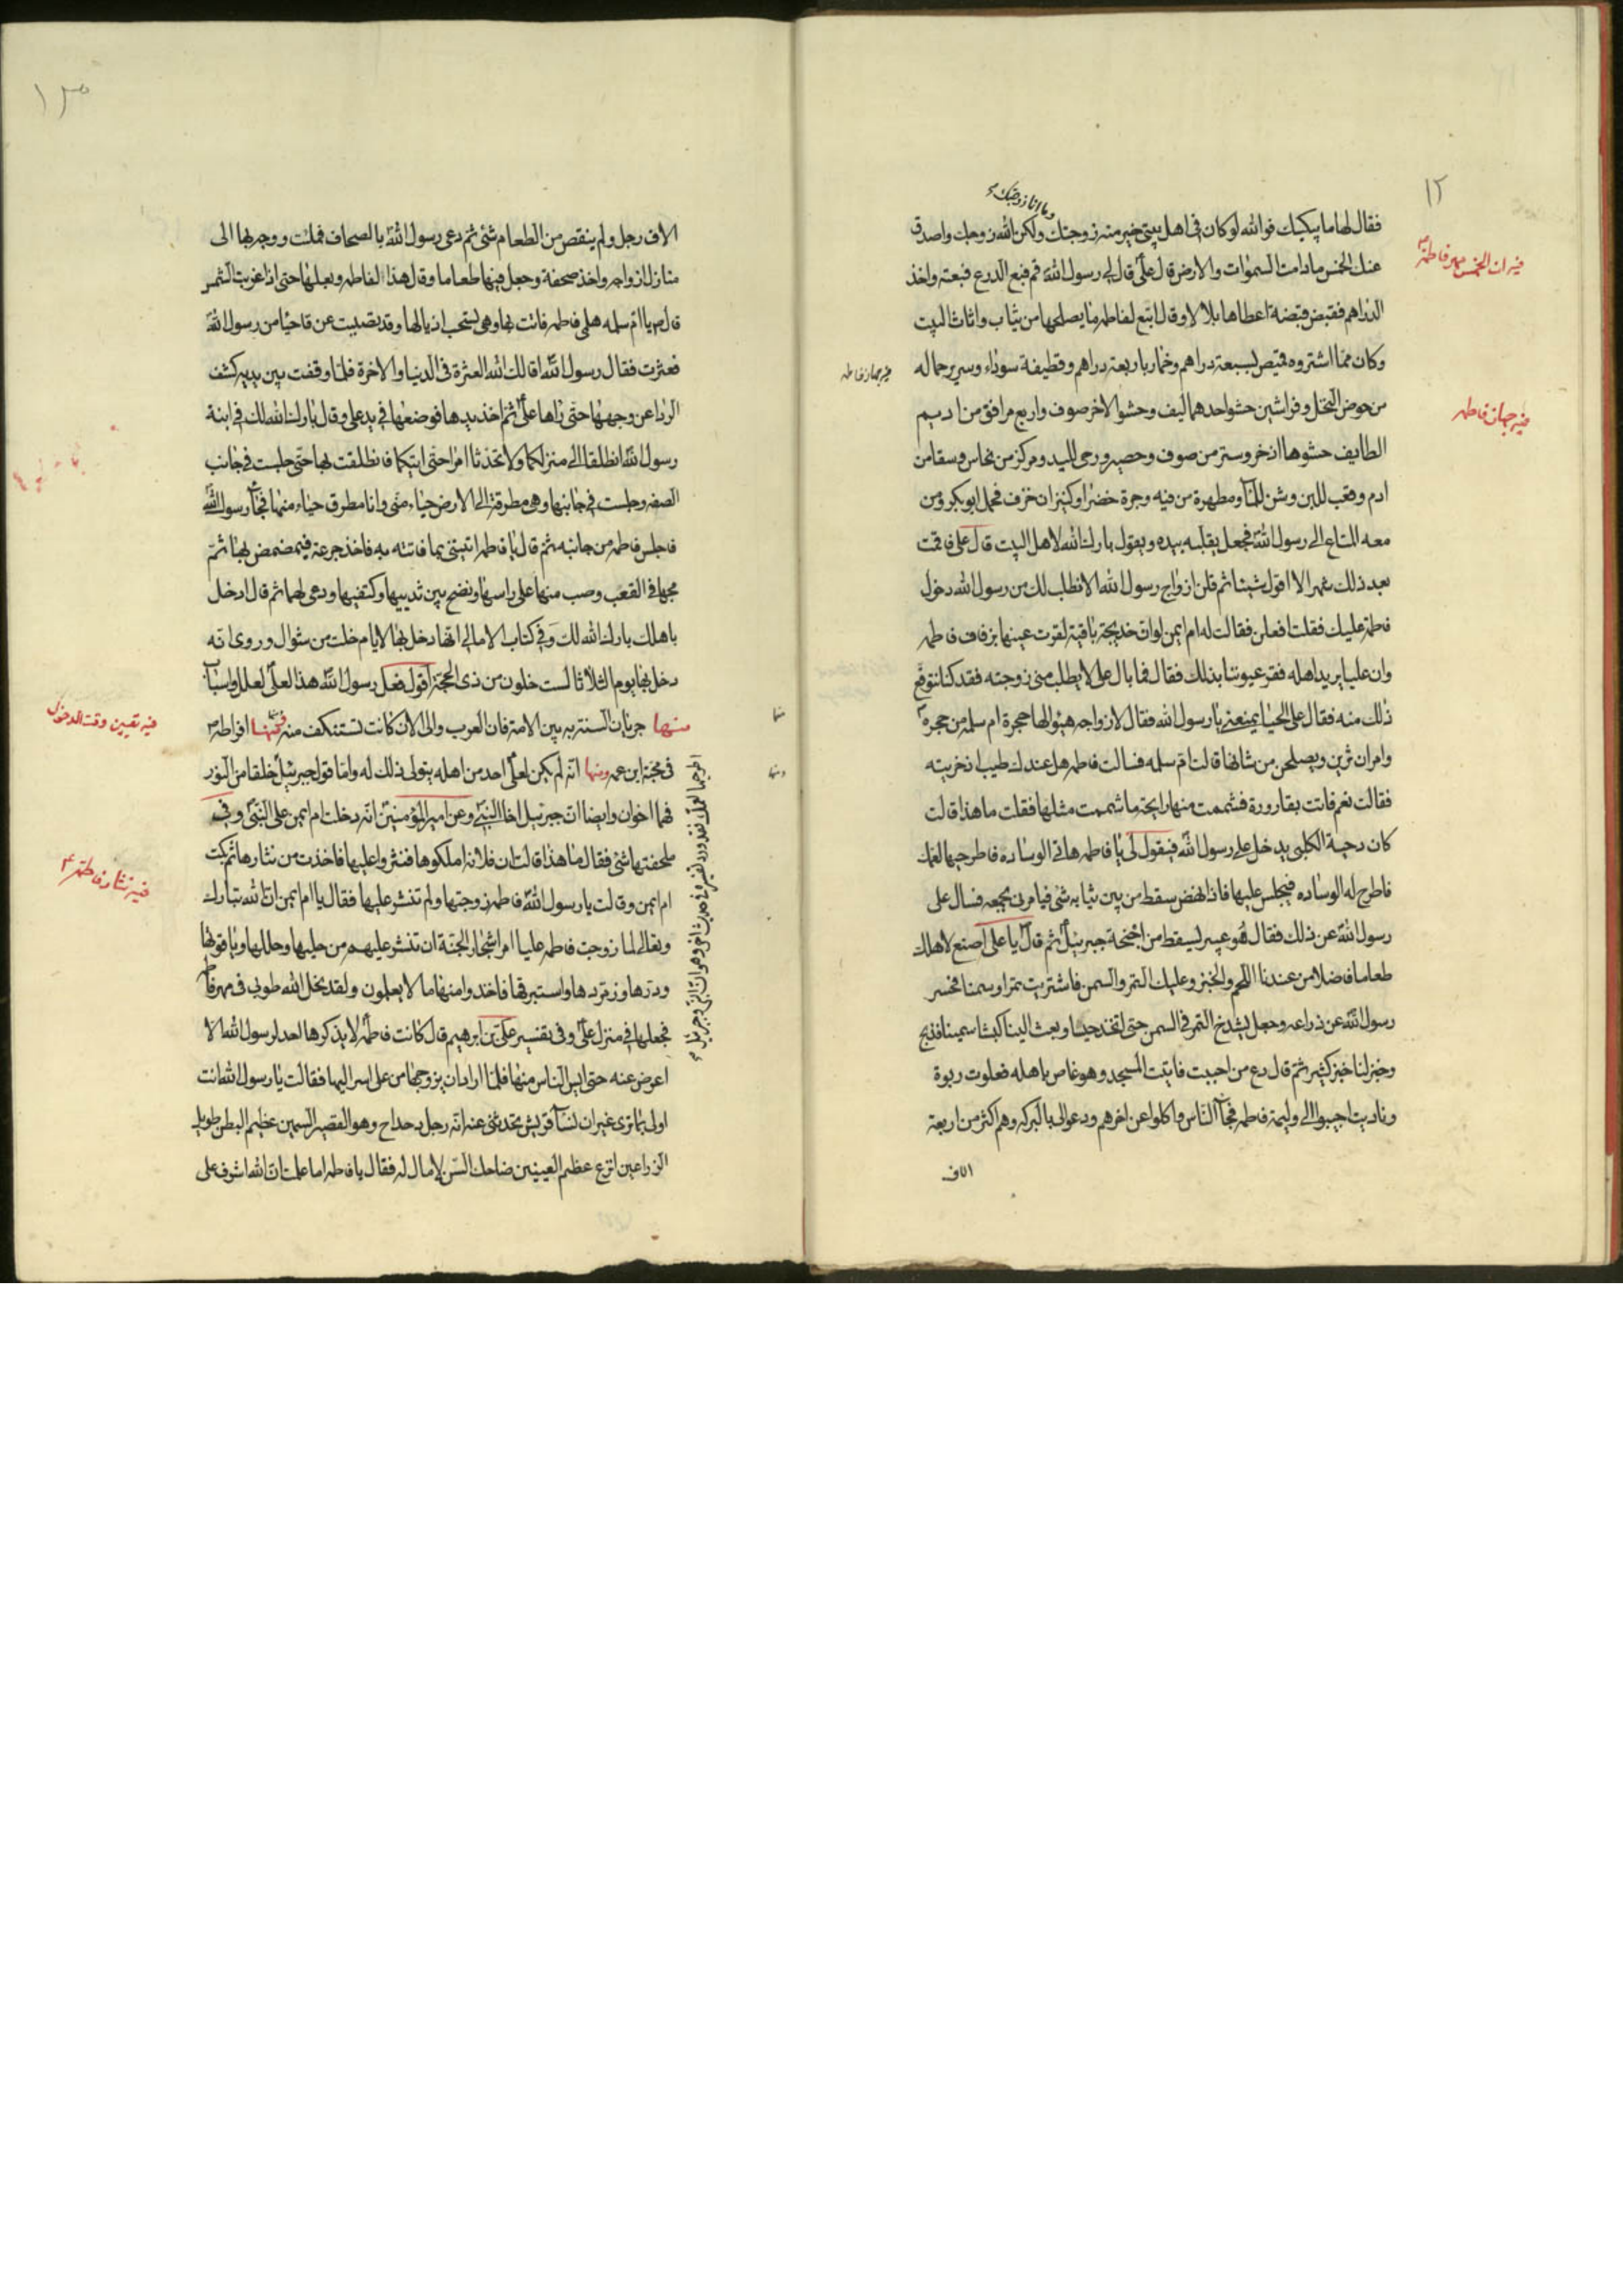 ١٢
وما انا زوجتك
فقال لها ما يبكيك فوالله لو كان في اهل بيتي خير منه زوجتك ولكن الله زوجك واصدق
عنك الخمس ما دامت السموات والارض قال علي قال لي رسول الله قم فبع الدرع فبعته واخذ
الدراهم فقبض قبضة اعطاها بلالا وقال ابتع لفاطمه ما يصلحها من ثياب واثاث البيت
وكان مما اشتروه قميص بسبعة دراهم وخمار باربعة دراهم وقطيفة سوداء وسرير حماله
من خوص النخل وفراشين حشو احدهما ليف وحشو الاخر صوف واربع مرافق من اديم
الطايف حشوها اذخر وستر من صوف وحصير ورحى لليد ومركز من نحاس وسقا من
ادم وقعب للبن وشن للمآ ومطهرة من فيه وجرة خضرا وكيزان خزف فحمل ابوبكر ومن
معه المتاع الى رسول الله فجعل يقلبه بيده ويقول بارك الله لاهل البيت قال علي فاقمت
بعد ذلك شهرا لا اقول شيئا ثم قلن ازواج رسول الله الا نطلب لك من رسول الله دخول
فاطمة عليك فقلت افعلن فقالت له ام ايمن لو ان خديجة باقية لقرت عينها بزفاف فاطمه
وان عليا يريد اهله فقر عيوننا بذلك فقال فما بال علي لا يطلب مني زوجته فقد كنا نتوقع
ذلك منه فقال علي الحيا يمنعني يا رسول الله فقال لازواجه هيئوا لها حجرة ام سلمه من حجره
وامر ان تزين ويصلحن من شانها قالت ام سلمه فسالت فاطمه هل عندك طيب ادخرتيه
فقالت نعم فاتت بقارورة فشممت منها رايحة ما شممت مثلها فقلت ما هذا قالت
كان دحية الكلبي يدخل على رسول الله فيقول لي يا فاطمه هاتي الوساده فاطرحيها لعمك
فاطرح له الوساده فيجلس عليها فاذا نهض سقط من بين ثيابه شئ فيامرني بجمعه فسال علي
رسول الله عن ذلك فقال هو عبير يسقط من اجنحة جبرئيل ثم قال يا علي اصنع لاهلك
طعاما فاضلا من عندنا اللحم والخبز وعليك التمر والسمن فاشتريت تمرا وسمنا فحسر
رسول الله عن ذراعه وجعل يشدخ التمر في السمن حتى اتخذ حيسا وبعث الينا كبشا سمينا فذبح
وخبز لنا خبز كثير ثم قال دع من احببت فاتيت المسجد وهو غاص باهله فعلوت ربوة
وناديت اجيبوا الى وليمة فاطمه فجآ الناس واكلوا عن اخرهم ودعوا لي بالبركه وهم اكثر من اربعة
الاف
فيه ان الخمس مهر فاطمة
فيه جهاز فاطمه
فيه جهاز فاطمه
١٣
الاف رجل ولم ينقص من الطعام شئ ثم دعى رسول الله بالصحاف فملئت ووجه بها الى
منازل ازواجه واخذ صحفة وجعل فيها طعاما وقال هذا لفاطمه وبعلها حتى اذا غربت الشمس
قال يا ام سلمه هلمي فاطمه فاتت بها وهي تسحب اذيالها وقد تصببت عرقا حيا من رسول الله
فعثرت فقال رسول الله اقالك الله العثرة في الدنيا والاخرة فلما وقفت بين يديه كشف
الرداء عن وجهها حتى راها علي ثم اخذ يدها فوضعها في يد علي وقال بارك الله لك في ابنة
رسول الله انطلقا الى منزلكما ولا تحدثا امرا حتى اتيكما فانطلقت بها حتى جلست في جانب
الصفه وجلست في جانبها وهي مطرقة الى الارض حياء مني وانا مطرق حياء منها فجآ رسول الله
فجلس فاطمه من جانبه ثم قال يا فاطمه ائتيني بما فاتته به فاخذ جرعة فتمضمض بها ثم
مجها في القعب وصب منها على راسها ونضح بين ثدييها وكتفيها ودعى لهما ثم قال ادخل
باهلك بارك الله لك وفي كتاب الامالي انه دخل بها لايام خلت من شوال وروى انه
دخل بها يوم الثلاثا لست خلون من ذي الحجة اقول فعل رسول الله هذا لعلي لعلل واسباب
منها جريان السنة به بين الامة فان العرب والى الان كانت تستنكف منه ومنها افراطه
في محبة ابن عمه ومنها انه لم يكن لعلي احد من اهله يتولى ذلك له واما قول جبرئيل خلقا من النور
فهما اخوان وايضا ان جبرئيل اخا النبي وعن امير المؤمنين انه دخلت ام ايمن على النبي وفي
ملحفتها شئ فقال ما هذا قالت ان فلانه املكوها فنثروا عليها فاخذت من نثارها ثم بكت
ام ايمن وقالت يا رسول الله فاطمه زوجتها ولم تنثر عليها فقال يا ام ايمن ان الله تبارك
وتعالى لما زوجت فاطمه عليا امر اشجار الجنة ان تنثر عليهم من حليها وحللها وياقوتها
ودرها وزمردها واستبرقها فاخذوا منها ما لا يعلمون ولقد نحل الله طوبى في مهر فاطمة
فجعلها في منزل علي وفي تفسير علي بن ابرهيم قال كانت فاطمة لا يذكرها احد لرسول الله الا
اعرض عنه حتى ايس الناس منها فلما اراد ان يزوجها من علي اسر اليها فقالت يا رسول الله انت
اولى بما ترى غير ان نسآ قريش تحدثني عنه انه رجل دحداح وهو القصير السمين عظيم البطن طويل
الذراعين انزع عظيم العينين ضاحك السن لا مال له فقال يا فاطمه اما علمت ان الله اشرف على
فيه تعيين وقت الدخول
فيه نثار فاطمة
منها
ومنها